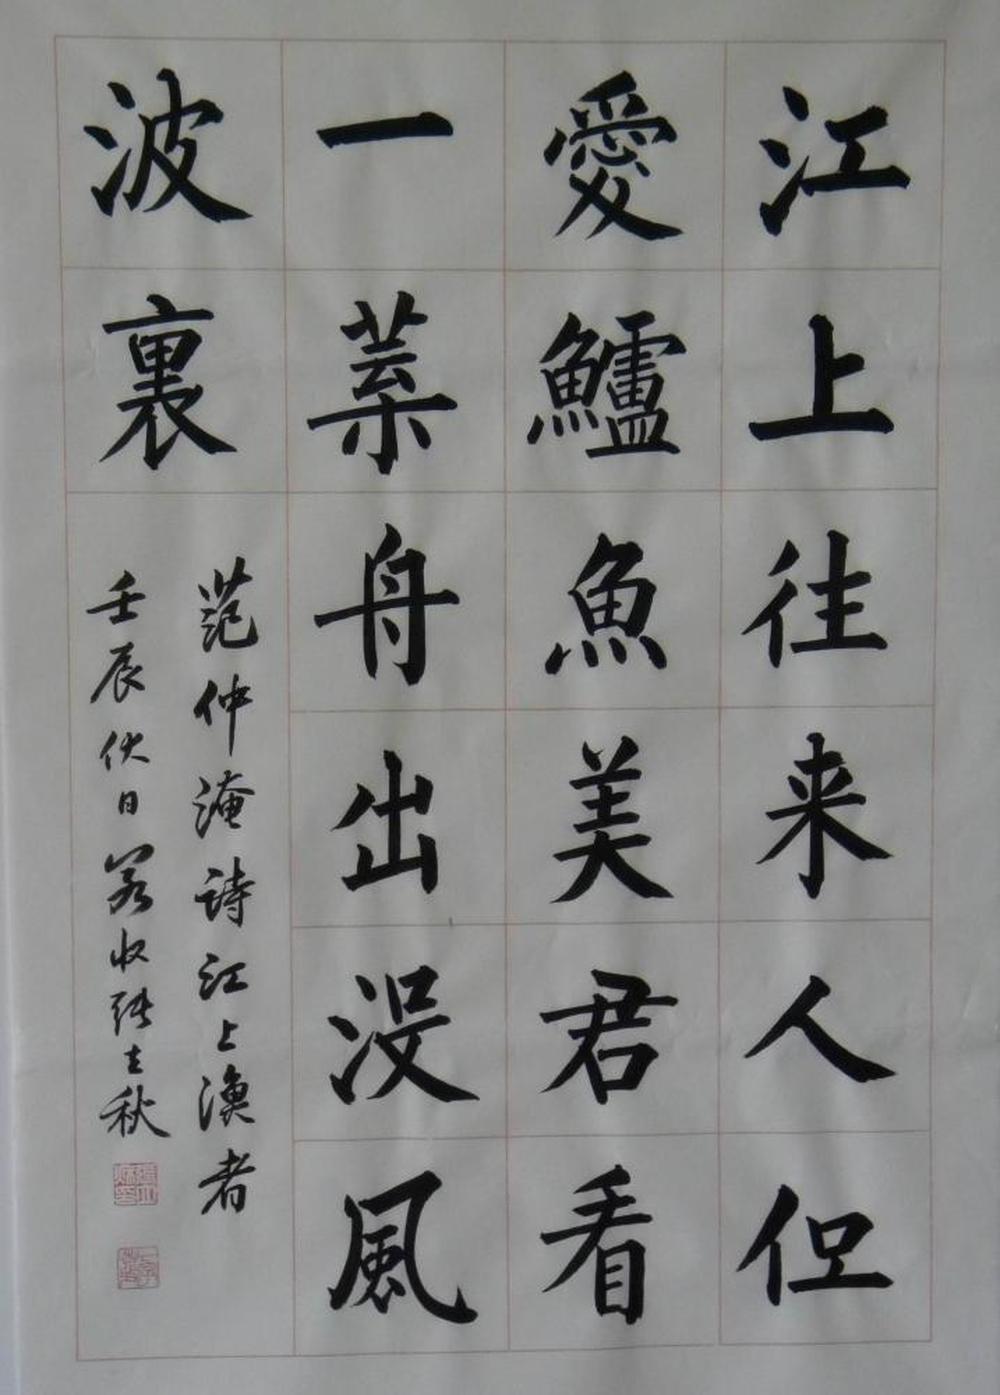 江上往来人但
愛鱸魚美君看
一葉舟出没風
波裏
范仲淹詩江上漁者
壬辰伏日 收張立秋